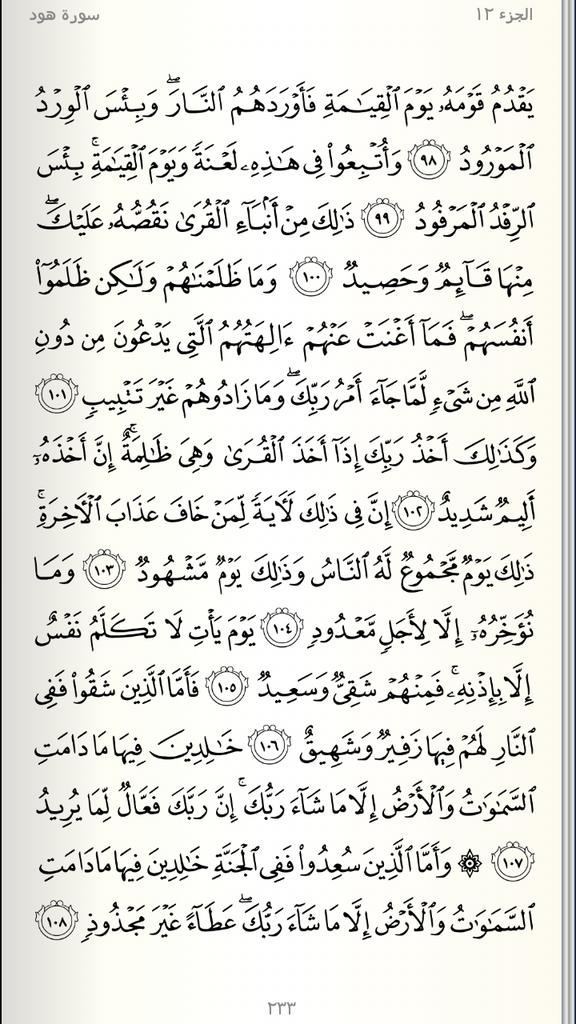 الجزء ١٢
سورة هود
يَقۡدُمُ قَوۡمَهُۥ يَوۡمَ ٱلۡقِيَٰمَةِ فَأَوۡرَدَهُمُ ٱلنَّارَۖ وَبِئۡسَ ٱلۡوِرۡدُ
ٱلۡمَوۡرُودُ ٩٨ وَأُتۡبِعُواْ فِي هَٰذِهِۦ لَعۡنَةٗ وَيَوۡمَ ٱلۡقِيَٰمَةِۚ بِئۡسَ
ٱلرِّفۡدُ ٱلۡمَرۡفُودُ ٩٩ ذَٰلِكَ مِنۡ أَنۢبَآءِ ٱلۡقُرَىٰ نَقُصُّهُۥ عَلَيۡكَۖ
مِنۡهَا قَآئِمٞ وَحَصِيدٞ ١٠٠ وَمَا ظَلَمۡنَٰهُمۡ وَلَٰكِن ظَلَمُوٓاْ
أَنفُسَهُمۡۖ فَمَآ أَغۡنَتۡ عَنۡهُمۡ ءَالِهَتُهُمُ ٱلَّتِي يَدۡعُونَ مِن دُونِ
ٱللَّهِ مِن شَيۡءٖ لَّمَّا جَآءَ أَمۡرُ رَبِّكَۖ وَمَا زَادُوهُمۡ غَيۡرَ تَتۡبِيبٖ ١٠١
وَكَذَٰلِكَ أَخۡذُ رَبِّكَ إِذَآ أَخَذَ ٱلۡقُرَىٰ وَهِيَ ظَٰلِمَةٌۚ إِنَّ أَخۡذَهُۥٓ
أَلِيمٞ شَدِيدٌ ١٠٢ إِنَّ فِي ذَٰلِكَ لَأٓيَةٗ لِّمَنۡ خَافَ عَذَابَ ٱلۡأٓخِرَةِۚ
ذَٰلِكَ يَوۡمٞ مَّجۡمُوعٞ لَّهُ ٱلنَّاسُ وَذَٰلِكَ يَوۡمٞ مَّشۡهُودٞ ١٠٣ وَمَا
نُؤَخِّرُهُۥٓ إِلَّا لِأَجَلٖ مَّعۡدُودٖ ١٠٤ يَوۡمَ يَأۡتِ لَا تَكَلَّمُ نَفۡسٌ
إِلَّا بِإِذۡنِهِۦۚ فَمِنۡهُمۡ شَقِيّٞ وَسَعِيدٞ ١٠٥ فَأَمَّا ٱلَّذِينَ شَقُواْ فَفِي
ٱلنَّارِ لَهُمۡ فِيهَا زَفِيرٞ وَشَهِيقٌ ١٠٦ خَٰلِدِينَ فِيهَا مَا دَامَتِ
ٱلسَّمَٰوَٰتُ وَٱلۡأَرۡضُ إِلَّا مَا شَآءَ رَبُّكَۚ إِنَّ رَبَّكَ فَعَّالٞ لِّمَا يُرِيدُ
١٠٧ ۞ وَأَمَّا ٱلَّذِينَ سُعِدُواْ فَفِي ٱلۡجَنَّةِ خَٰلِدِينَ فِيهَا مَا دَامَتِ
ٱلسَّمَٰوَٰتُ وَٱلۡأَرۡضُ إِلَّا مَا شَآءَ رَبُّكَۖ عَطَآءً غَيۡرَ مَجۡذُوذٖ ١٠٨
٢٣٣